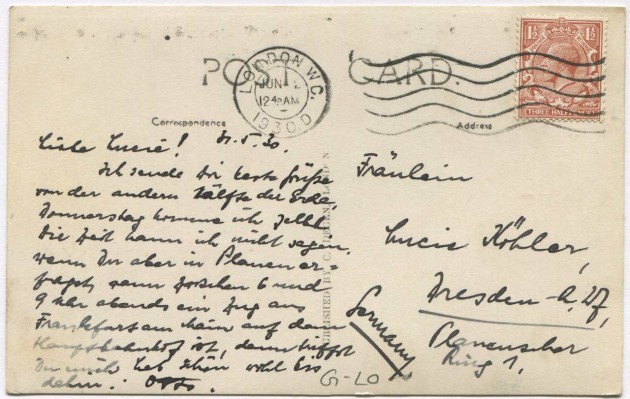 POST CARD.
LONDON W.C.
JUN 2
12 45 AM
1930
1½ 1½
THREE HALF PENCE
Correspondence
Address
Liebe Lucie! 31.5.30.
Ich sende Dir beste Grüße
von der andern Hälfte der Erde,
Donnerstag komme ich selbst
Die Zeit kann ich nicht sagen.
wenn Du aber in Plauen er-
fragst, wann zwischen 6 und
9 Uhr abends ein Zug aus
Frankfurt am Main auf dem
Hauptbahnhof ist, dann triffst
Du mich
wohl bis
dahin. Otto.
PUBLISHED BY LONDON
Fräulein
Lucie Köhler,
Dresden-A, 27,
Plauenscher
Ring 1,
Germany
G-LO